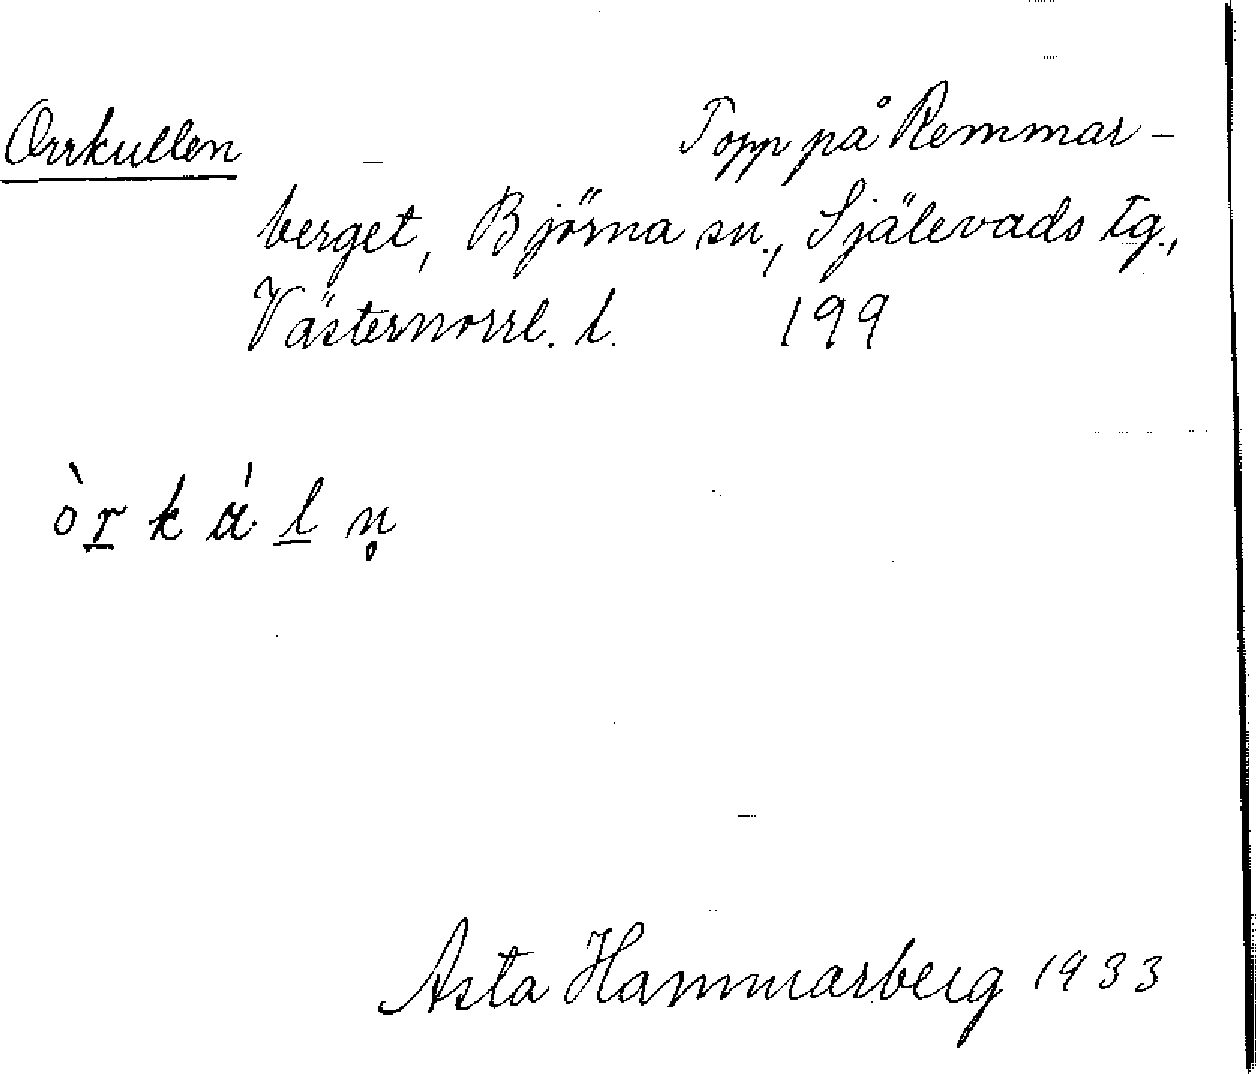 Orrkullen Topp på Remmar-
berget, Björna sn., Själevads tg.,
Västernorrl. l. 199
Asta Hammarberg 1933